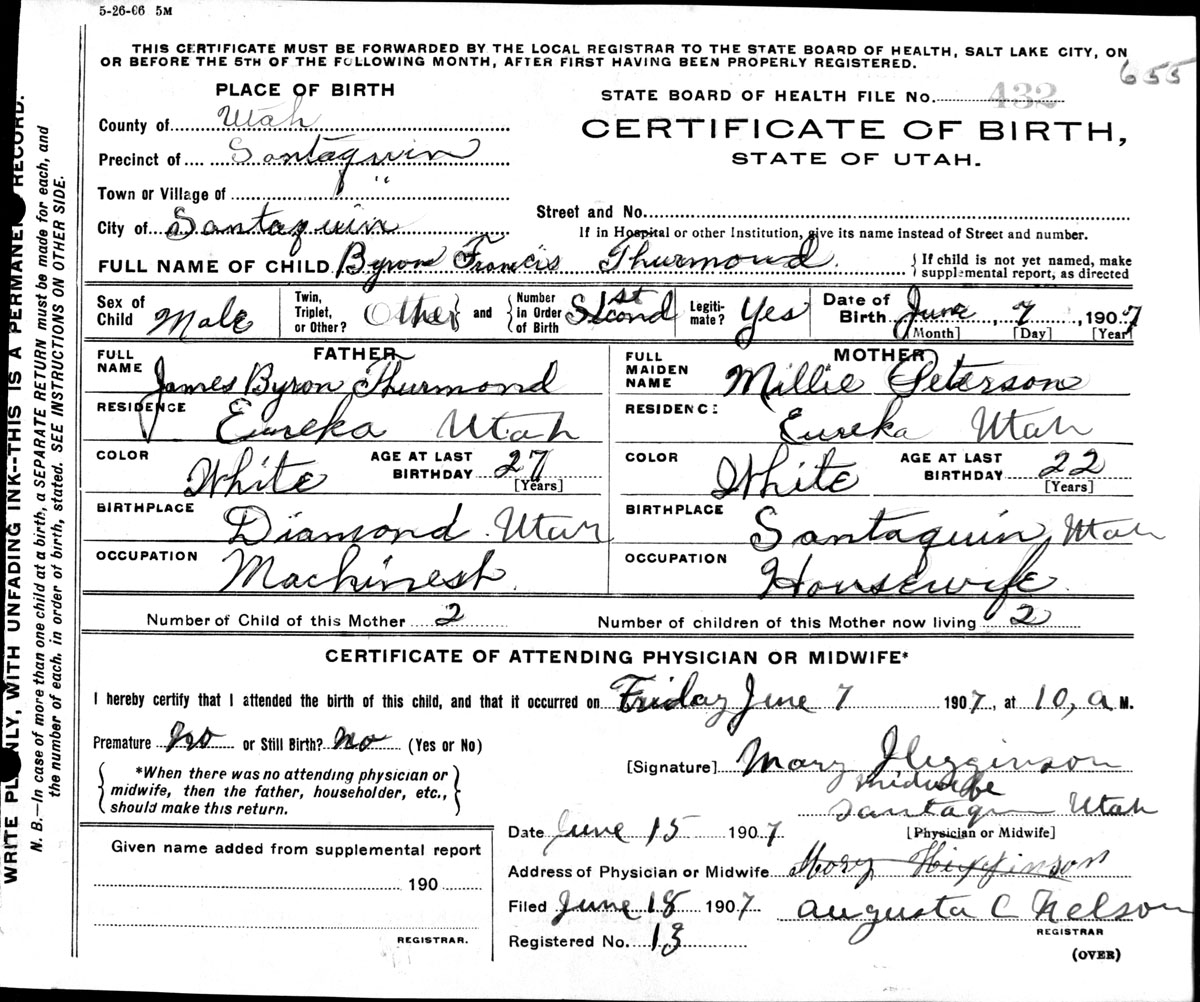 5-26-06 5M
THIS CERTIFICATE MUST BE FORWARDED BY THE LOCAL REGISTRAR TO THE STATE BOARD OF HEALTH, SALT LAKE CITY, ON
OR BEFORE THE 5TH OF THE FOLLOWING MONTH, AFTER FIRST HAVING BEEN PROPERLY REGISTERED.
655
PLACE OF BIRTH
STATE BOARD OF HEALTH FILE No. 432
County of Utah
CERTIFICATE OF BIRTH,
Precinct of Santaquin
STATE OF UTAH.
Town or Village of "
Street and No.
City of Santaquin
If in Hospital or other Institution, give its name instead of Street and number.
FULL NAME OF CHILD Byron Francis Thurmond. { If child is not yet named, make supplemental report, as directed
Sex of Child Male
Twin, Triplet, or Other? Other } and { Number in Order of Birth Second 1st
Legitimate? Yes
Date of Birth June, 7, 1907
[Month] [Day] [Year]
FATHER
FULL NAME James Byron Thurmond
RESIDENCE Eureka Utah
COLOR White AGE AT LAST BIRTHDAY 27 [Years]
BIRTHPLACE Diamond Utah
OCCUPATION Machinest
MOTHER
FULL MAIDEN NAME Millie Peterson
RESIDENCE Eureka Utah
COLOR White AGE AT LAST BIRTHDAY 22 [Years]
BIRTHPLACE Santaquin Utah
OCCUPATION Housewife
Number of Child of this Mother 2 Number of children of this Mother now living 2
CERTIFICATE OF ATTENDING PHYSICIAN OR MIDWIFE*
I hereby certify that I attended the birth of this child, and that it occurred on Friday June 7 1907, at 10, a M.
Premature no or Still Birth? no (Yes or No)
{ *When there was no attending physician or midwife, then the father, householder, etc., should make this return. }
[Signature] Mary Higginson
midwife
Santaquin Utah
Date June 15 1907 [Physician or Midwife]
Address of Physician or Midwife Mary Higginson
Filed June 18 1907 Augusta C Nelson
REGISTRAR
Registered No. 13
(OVER)
Given name added from supplemental report
190
REGISTRAR.
WRITE PLAINLY, WITH UNFADING INK--THIS IS A PERMANENT RECORD.
N. B.—In case of more than one child at a birth, a SEPARATE RETURN must be made for each, and
the number of each, in order of birth, stated. SEE INSTRUCTIONS ON OTHER SIDE.